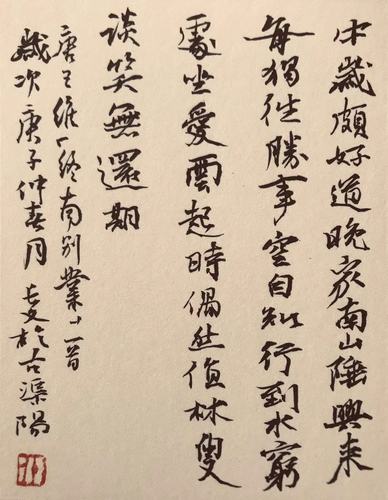 中歲頗好道晚家南山陲興來
每獨往勝事空自知行到水窮
處坐愛雲起時偶然值林叟
談笑無還期
唐王維「終南別業」一首
歲次庚子仲春月於古渠陽